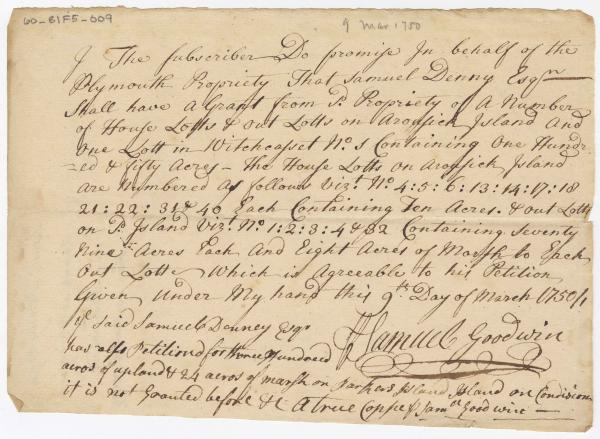 60-81F5-009
9 Mar 1750
I The subscriber Do promise In behalf of the
Plymouth Propriety That Samuel Denny Esqr
Shall have A Grant from sd Propriety of A Number
of House Lotts & out Lotts on Arowsick Island And
One Lott in Witchcasset No 5 Containing One Hundr-
-ed & fifty Acres - the House Lotts on Arowsick Island
are Numbered As follows Viz. No. 4: 5: 6: 13: 14: 17: 18
21: 22: 31 & 40 Each Containing Ten Acres. & out Lotts
on sd Island Viz. No. 1: 2: 3: 4 & 32 Containing Seventy
Nine Acres Each And Eight Acres of Marsh to Each
Out Lott Which is Agreeable to his Petition
Given Under My hand this 9th Day of March 1750/1
ye Said Samuel Denney Esqr
Samuel Goodwin
has also Petitiond for three Hundred
acros of upland & 24 acros of marsh on parkers Island Island on Condision
it is not Granted before &c A true Coppe pr Samll Goodwin